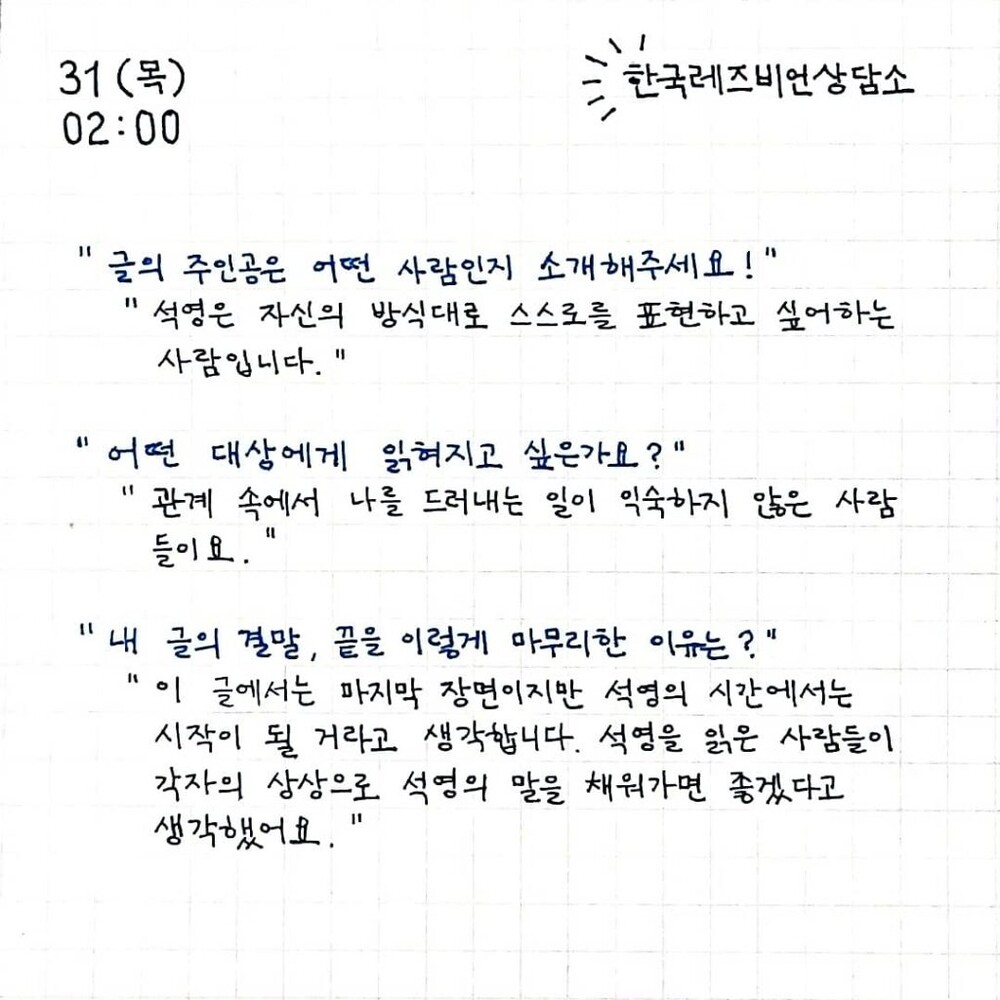 31(목)
02:00
한국레즈비언상담소
"글의 주인공은 어떤 사람인지 소개해주세요!"
"석영은 자신의 방식대로 스스로를 표현하고 싶어하는
사람입니다."
"어떤 대상에게 읽혀지고 싶은가요?"
"관계 속에서 나를 드러내는 일이 익숙하지 않은 사람
들이요."
"내 글의 결말, 끝을 이렇게 마무리한 이유는?"
"이 글에서는 마지막 장면이지만 석영의 시간에서는
시작이 될 거라고 생각합니다. 석영을 읽은 사람들이
각자의 상상으로 석영의 말을 채워가면 좋겠다고
생각했어요."